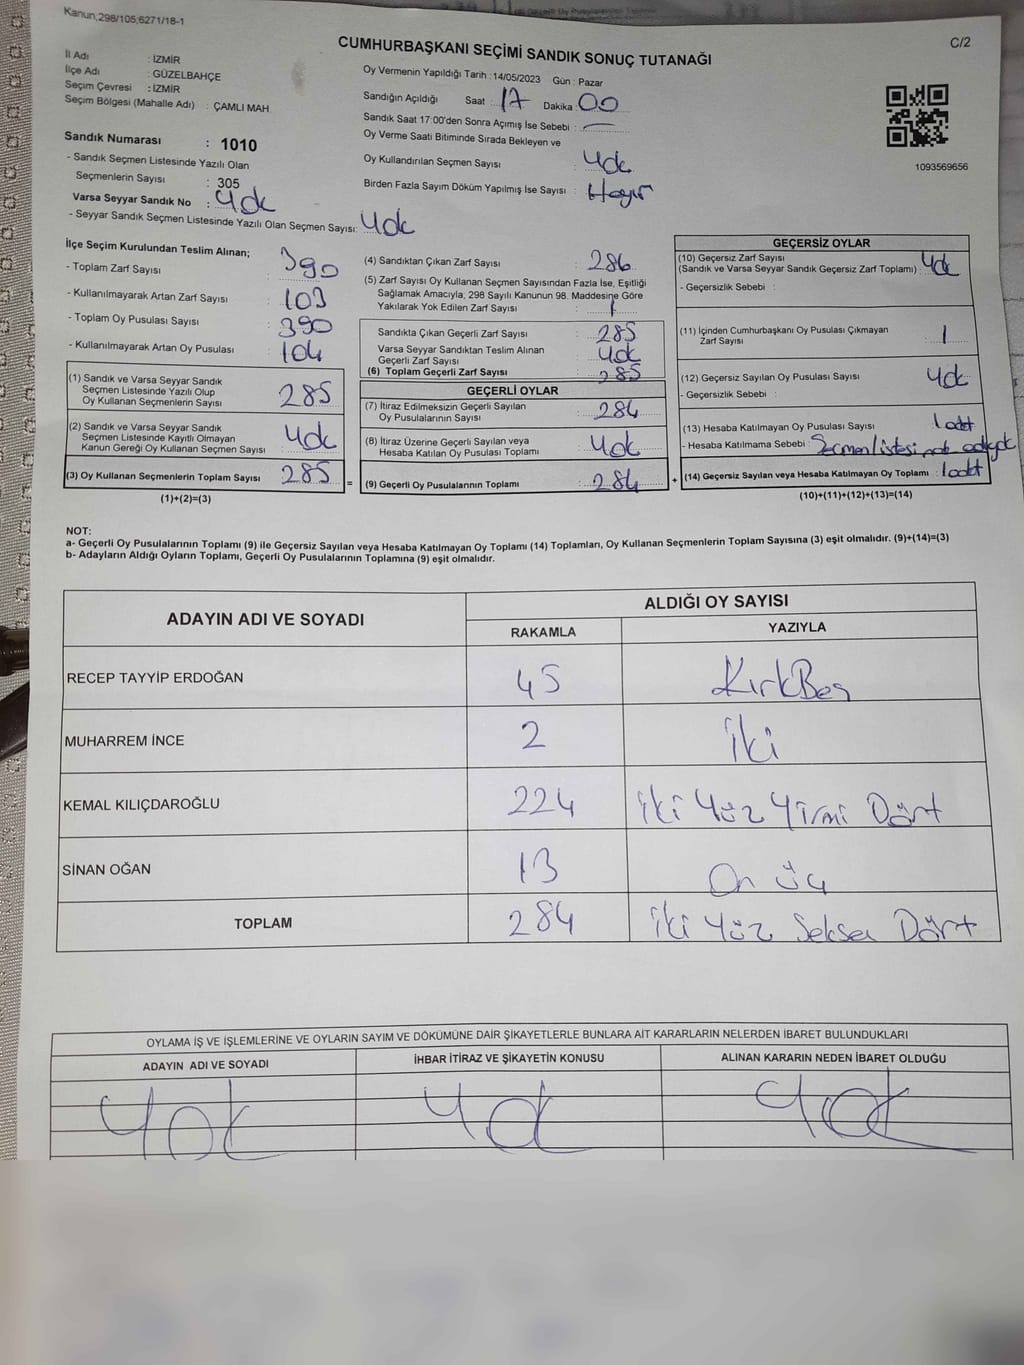 Kanun,298/105,6271/18-1
C/2
CUMHURBAŞKANI SEÇİMİ SANDIK SONUÇ TUTANAĞI
İl Adı : İZMİR
İlçe Adı : GÜZELBAHÇE
Seçim Çevresi : İZMİR
Seçim Bölgesi (Mahalle Adı) : ÇAMLI MAH.
Sandık Numarası : 1010
- Sandık Seçmen Listesinde Yazılı Olan
Seçmenlerin Sayısı : 305
Varsa Seyyar Sandık No : Yok
- Seyyar Sandık Seçmen Listesinde Yazılı Olan Seçmen Sayısı: Yok
Oy Vermenin Yapıldığı Tarih : 14/05/2023 Gün : Pazar
Sandığın Açıldığı Saat : 17 Dakika : 00
Sandık Saat 17:00'den Sonra Açımış İse Sebebi : —
Oy Verme Saati Bitiminde Sırada Bekleyen ve
Oy Kullandırılan Seçmen Sayısı : Yok
Birden Fazla Sayım Döküm Yapılmış İse Sayısı : Hayır
1093569656
İlçe Seçim Kurulundan Teslim Alınan;
- Toplam Zarf Sayısı : 390
- Kullanılmayarak Artan Zarf Sayısı : 103
- Toplam Oy Pusulası Sayısı : 390
- Kullanılmayarak Artan Oy Pusulası : 104
(1) Sandık ve Varsa Seyyar Sandık
Seçmen Listesinde Yazılı Olup
Oy Kullanan Seçmenlerin Sayısı : 285
(2) Sandık ve Varsa Seyyar Sandık
Seçmen Listesinde Kayıtlı Olmayan
Kanun Gereği Oy Kullanan Seçmen Sayısı : Yok
(3) Oy Kullanan Seçmenlerin Toplam Sayısı : 285 =
(1)+(2)=(3)
(4) Sandıktan Çıkan Zarf Sayısı : 286
(5) Zarf Sayısı Oy Kullanan Seçmen Sayısından Fazla İse, Eşitliği
Sağlamak Amacıyla; 298 Sayılı Kanunun 98. Maddesine Göre
Yakılarak Yok Edilen Zarf Sayısı : 1
Sandıkta Çıkan Geçerli Zarf Sayısı : 285
Varsa Seyyar Sandıktan Teslim Alınan
Geçerli Zarf Sayısı : Yok
(6) Toplam Geçerli Zarf Sayısı : 285
GEÇERLİ OYLAR
(7) İtiraz Edilmeksizin Geçerli Sayılan
Oy Pusulalarının Sayısı : 284
(8) İtiraz Üzerine Geçerli Sayılan veya
Hesaba Katılan Oy Pusulası Toplamı : Yok
(9) Geçerli Oy Pusulalarının Toplamı : 284 +
GEÇERSİZ OYLAR
(10) Geçersiz Zarf Sayısı
(Sandık ve Varsa Seyyar Sandık Geçersiz Zarf Toplamı) : Yok
- Geçersizlik Sebebi :
(11) İçinden Cumhurbaşkanı Oy Pusulası Çıkmayan
Zarf Sayısı : 1
(12) Geçersiz Sayılan Oy Pusulası Sayısı : Yok
- Geçersizlik Sebebi :
(13) Hesaba Katılmayan Oy Pusulası Sayısı : 1 adet
- Hesaba Katılmama Sebebi : Seçmen listesi
(14) Geçersiz Sayılan veya Hesaba Katılmayan Oy Toplamı : 1 adet
(10)+(11)+(12)+(13)=(14)
NOT:
a- Geçerli Oy Pusulalarının Toplamı (9) ile Geçersiz Sayılan veya Hesaba Katılmayan Oy Toplamı (14) Toplamları, Oy Kullanan Seçmenlerin Toplam Sayısına (3) eşit olmalıdır. (9)+(14)=(3)
b- Adayların Aldığı Oyların Toplamı, Geçerli Oy Pusulalarının Toplamına (9) eşit olmalıdır.
ADAYIN ADI VE SOYADI
ALDIĞI OY SAYISI
RAKAMLA YAZIYLA
RECEP TAYYİP ERDOĞAN 45 KırkBeş
MUHARREM İNCE 2 iki
KEMAL KILIÇDAROĞLU 224 iki Yüz Yirmi Dört
SİNAN OĞAN 13 On üç
TOPLAM 284 iki Yüz Seksen Dört
OYLAMA İŞ VE İŞLEMLERİNE VE OYLARIN SAYIM VE DÖKÜMÜNE DAİR ŞİKAYETLERLE BUNLARA AİT KARARLARIN NELERDEN İBARET BULUNDUKLARI
ADAYIN ADI VE SOYADI İHBAR İTİRAZ VE ŞİKAYETİN KONUSU ALINAN KARARIN NEDEN İBARET OLDUĞU
Yok Yok Yok